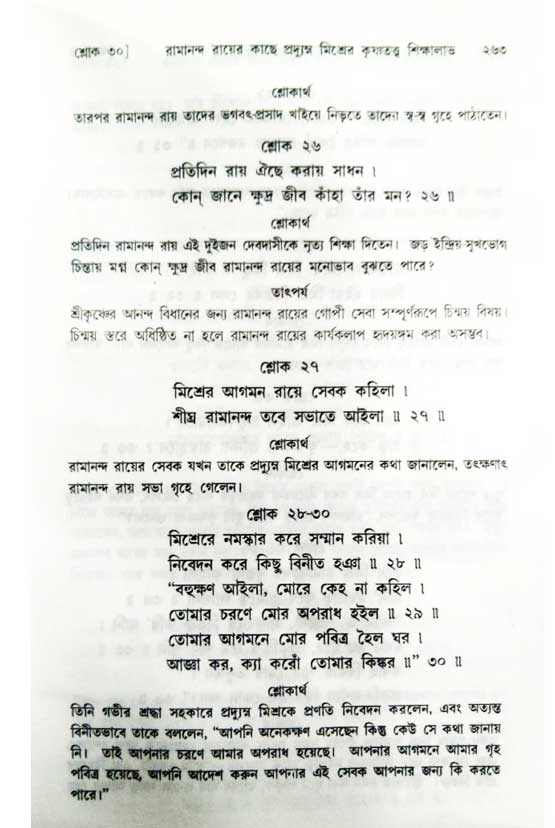 শ্লোক ৩০] রামানন্দ রায়ের কাছে প্রদ্যুম্ন মিশ্রের কৃষ্ণতত্ত্ব শিক্ষালাভ ২৬৩
শ্লোকার্থ
তারপর রামানন্দ রায় তাদের ভগবৎ-প্রসাদ খাইয়ে নিভৃতে তাদের স্ব-স্ব গৃহে পাঠাতেন।
শ্লোক ২৬
প্রতিদিন রায় ঐছে করায় সাধন ।
কোন্ জানে ক্ষুদ্র জীব কাঁহা তাঁর মন? ২৬ ॥
শ্লোকার্থ
প্রতিদিন রামানন্দ রায় এই দুইজন দেবদাসীকে নৃত্য শিক্ষা দিতেন। জড় ইন্দ্রিয়-সুখভোগ
চিন্তায় মগ্ন কোন্ ক্ষুদ্র জীব রামানন্দ রায়ের মনোভাব বুঝতে পারে?
তাৎপর্য
শ্রীকৃষ্ণের আনন্দ বিধানের জন্য রামানন্দ রায়ের গোপী সেবা সম্পূর্ণরূপে চিন্ময় বিষয়।
চিন্ময় স্তরে অধিষ্ঠিত না হলে রামানন্দ রায়ের কার্যকলাপ হৃদয়ঙ্গম করা অসম্ভব।
শ্লোক ২৭
মিশ্রের আগমন রায়ে সেবক কহিলা ।
শীঘ্র রামানন্দ তবে সভাতে আইলা ॥ ২৭ ॥
শ্লোকার্থ
রামানন্দ রায়ের সেবক যখন তাকে প্রদ্যুম্ন মিশ্রের আগমনের কথা জানালেন, তৎক্ষণাৎ
রামানন্দ রায় সভা গৃহে গেলেন।
শ্লোক ২৮-৩০
মিশ্রেরে নমস্কার করে সম্মান করিয়া ।
নিবেদন করে কিছু বিনীত হঞা ॥ ২৮ ॥
“বহুক্ষণ আইলা, মোরে কেহ না কহিল ।
তোমার চরণে মোর অপরাধ হইল ॥ ২৯ ॥
তোমার আগমনে মোর পবিত্র হৈল ঘর ।
আজ্ঞা কর, ক্যা করোঁ তোমার কিঙ্কর ॥” ৩০ ॥
শ্লোকার্থ
তিনি গভীর শ্রদ্ধা সহকারে প্রদ্যুম্ন মিশ্রকে প্রণতি নিবেদন করলেন, এবং অত্যন্ত
বিনীতভাবে তাকে বললেন, “আপনি অনেকক্ষণ এসেছেন কিন্তু কেউ সে কথা জানায়
নি। তাই আপনার চরণে আমার অপরাধ হয়েছে। আপনার আগমনে আমার গৃহ
পবিত্র হয়েছে, আপনি আদেশ করুন আপনার এই সেবক আপনার জন্য কি করতে
পারে।”